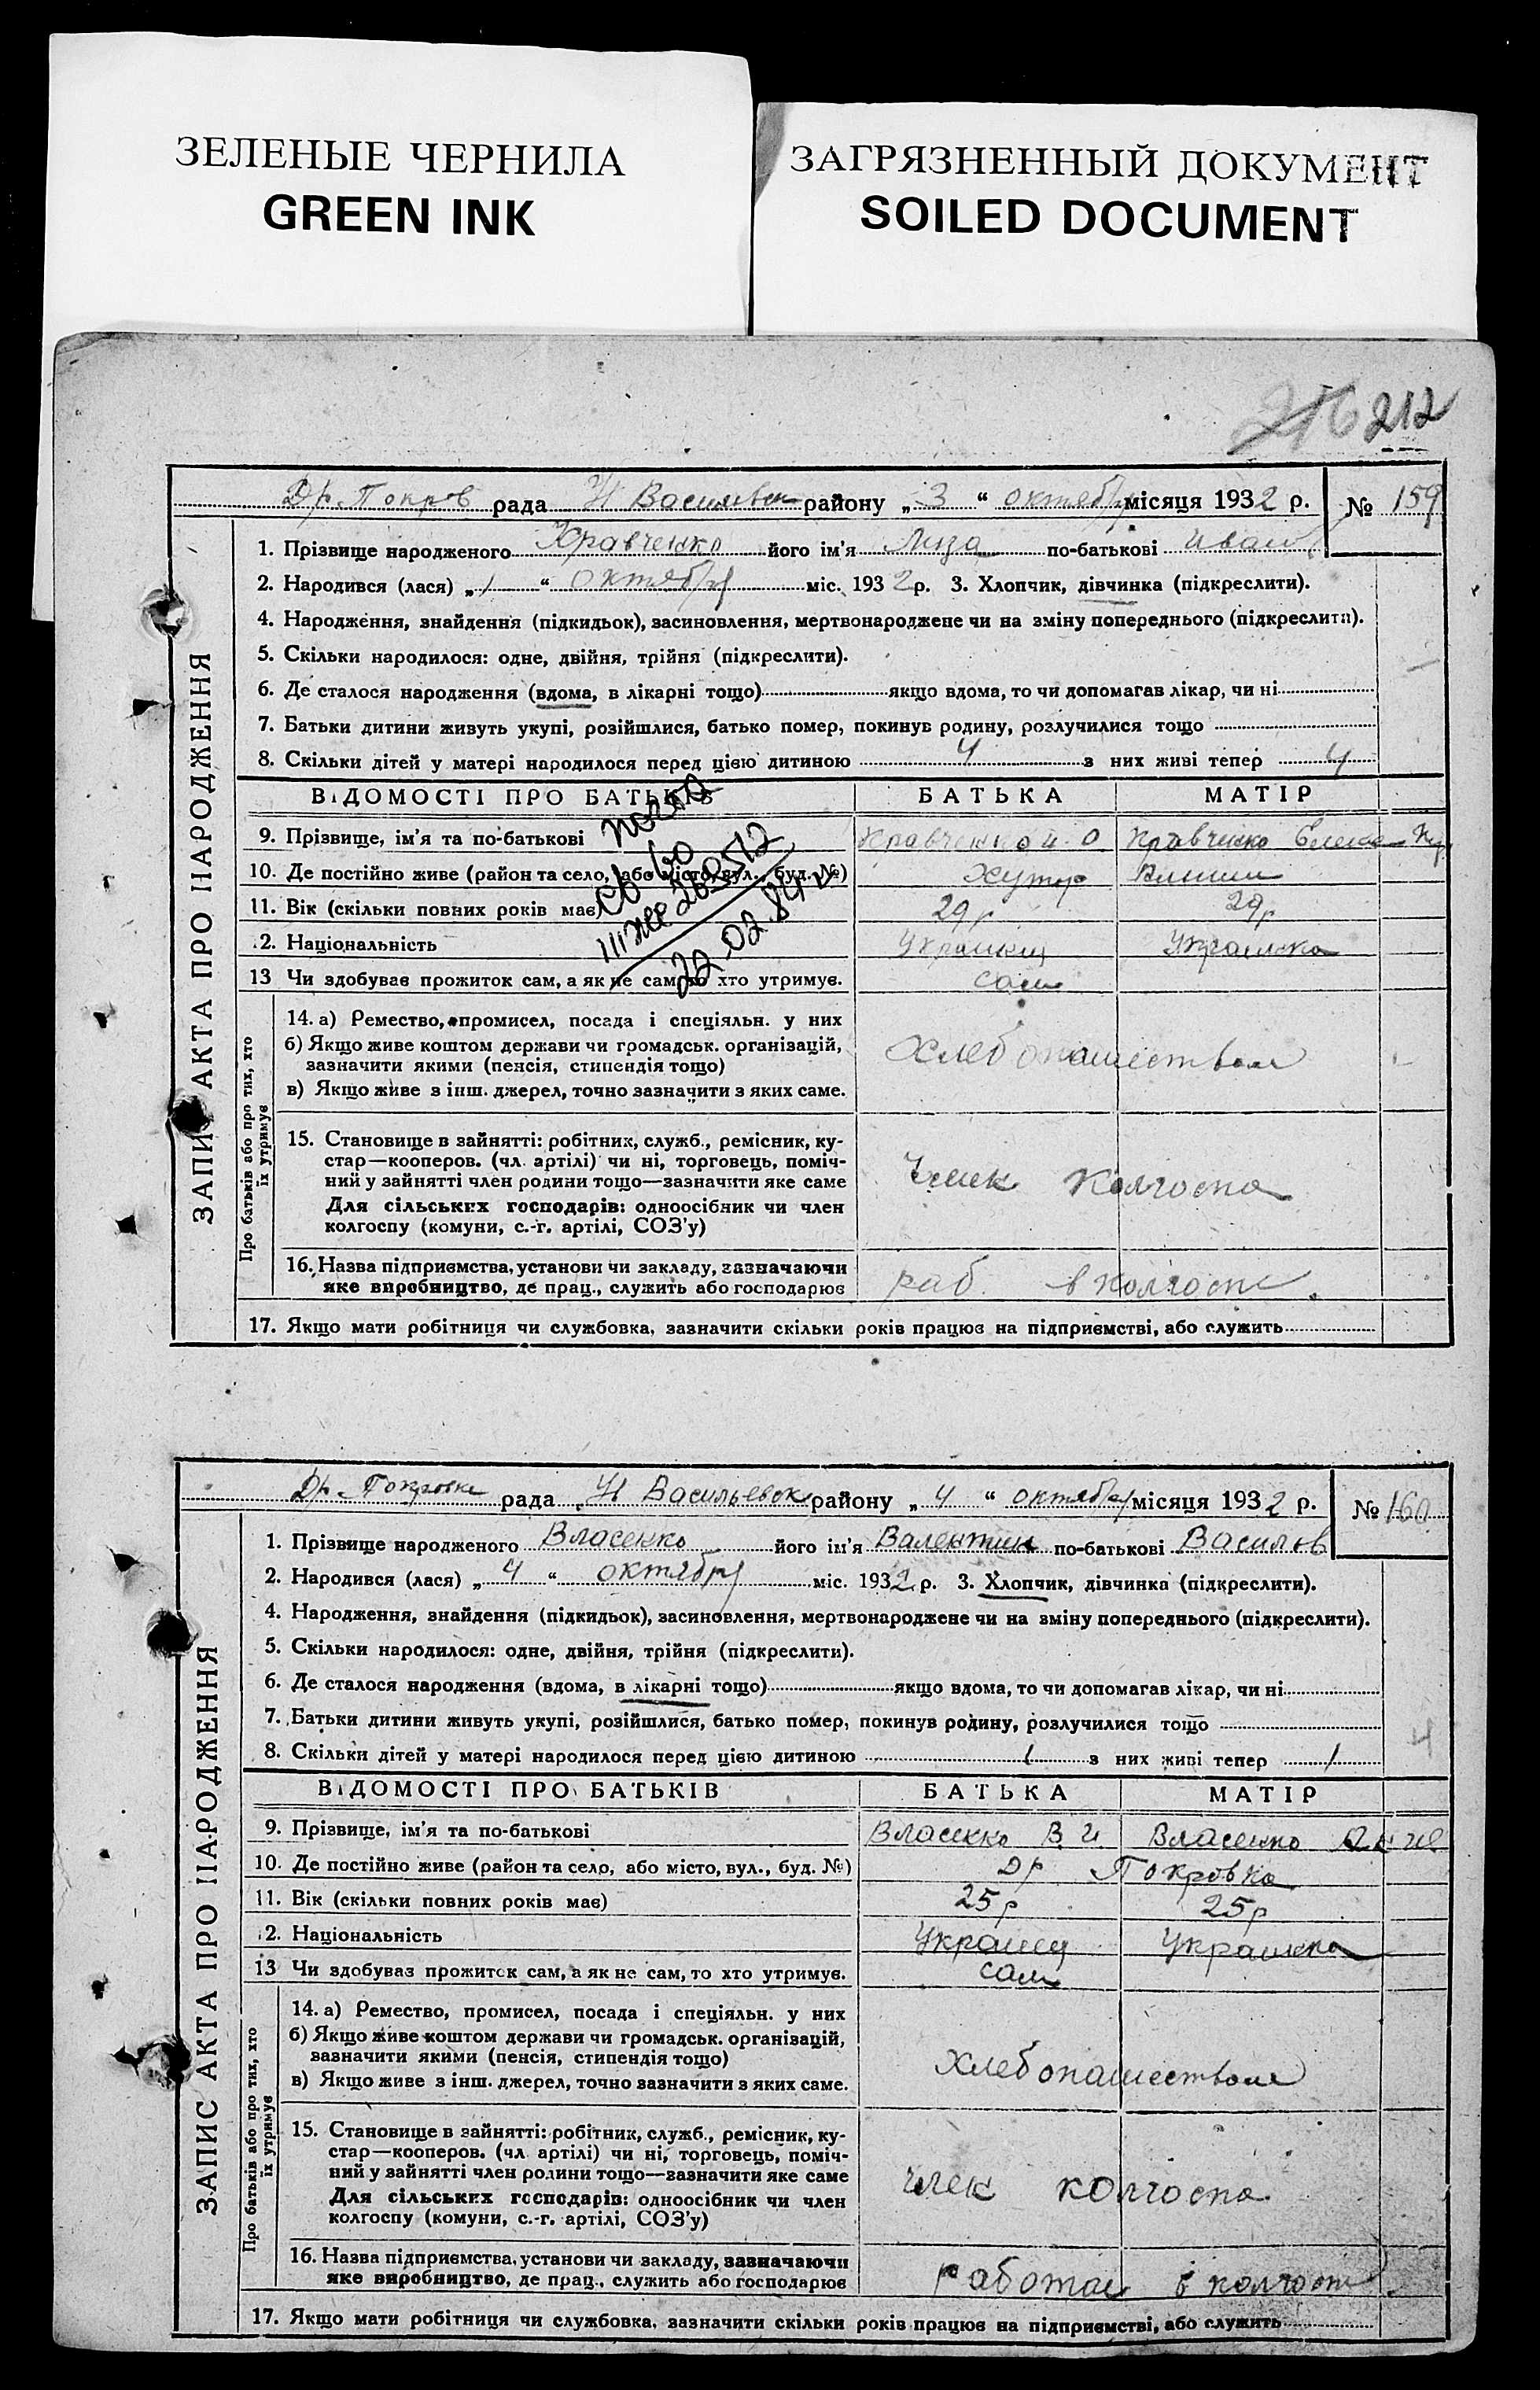 ЗЕЛЕНЫЕ ЧЕРНИЛА
GREEN INK
ЗАГРЯЗНЕННЫЙ ДОКУМЕНТ
SOILED DOCUMENT
216 212
Др. Покров рада Н Васильевск району „3“ октября місяця 1932 р. № 159
ЗАПИС АКТА ПРО НАРОДЖЕННЯ
1. Прізвище народженого Кравченко його ім'я Лиза по-батькові Иван
2. Народився (лася) „1“ октября міс. 1932 р. 3. Хлопчик, дівчинка (підкреслити).
4. Народження, знайдення (підкидьок), засиновлення, мертвонароджене чи на зміну попереднього (підкреслити).
5. Скільки народилося: одне, двійня, трійня (підкреслити).
6. Де сталося народження (вдома, в лікарні тощо) якщо вдома, то чи допомагав лікар, чи ні
7. Батьки дитини живуть укупі, розійшлися, батько помер, покинув родину, розлучилися тощо
8. Скільки дітей у матері народилося перед цією дитиною 4 з них живі тепер 4
ВІДОМОСТІ ПРО БАТЬКІВ БАТЬКА МАТІР
9. Прізвище, ім'я та по-батькові Кравченко И. О. Кравченко Елена
10. Де постійно живе (район та село, або місто, вул., буд. №) Хутор
11. Вік (скільки повних років має) 29 р 29 р
12. Національність Украинец Украинка
13 Чи здобуває прожиток сам, а як не сам, то хто утримує. сам
св-во
22.02.84 г
Про батьків або про тих, хто їх утримує
14. а) Ремество, промисел, посада і спеціяльн. у них
б) Якщо живе коштом держави чи громадськ. організацій,
зазначити якими (пенсія, стипендія тощо)
в) Якщо живе з інш. джерел, точно зазначити з яких саме.
Хлебопашеством
15. Становище в зайнятті: робітник, служб., ремісник, ку-
стар—кооперов. (чл. артілі) чи ні, торговець, поміч-
ний у зайнятті член родини тощо—зазначити яке саме
Для сільських господарів: одноосібник чи член
колгоспу (комуни, с.-г. артілі, СОЗ'у)
Член колгоспа
16. Назва підприємства, установи чи закладу, зазначаючи
яке виробництво, де прац., служить або господарює
раб. в колгоспе.
17. Якщо мати робітниця чи службовка, зазначити скільки років працює на підприємстві, або служить
Др. Покровка рада Н Васильевск району „4“ октября місяця 1932 р. № 160
ЗАПИС АКТА ПРО НАРОДЖЕННЯ
1. Прізвище народженого Власенко його ім'я Валентин по-батькові Васильев
2. Народився (лася) „4“ октября міс. 1932 р. 3. Хлопчик, дівчинка (підкреслити).
4. Народження, знайдення (підкидьок), засиновлення, мертвонароджене чи на зміну попереднього (підкреслити).
5. Скільки народилося: одне, двійня, трійня (підкреслити).
6. Де сталося народження (вдома, в лікарні тощо) якщо вдома, то чи допомагав лікар, чи ні
7. Батьки дитини живуть укупі, розійшлися, батько помер, покинув родину, розлучилися тощо
8. Скільки дітей у матері народилося перед цією дитиною 1 з них живі тепер 1
4
ВІДОМОСТІ ПРО БАТЬКІВ БАТЬКА МАТІР
9. Прізвище, ім'я та по-батькові Власенко В. И Власенко
10. Де постійно живе (район та село, або місто, вул., буд. №) Др Покровка
11. Вік (скільки повних років має) 25 р 25 р
12. Національність Украинец Украинка
13 Чи здобуває прожиток сам, а як не сам, то хто утримує. сам
Про батьків або про тих, хто їх утримує
14. а) Ремество, промисел, посада і спеціяльн. у них
б) Якщо живе коштом держави чи громадськ. організацій,
зазначити якими (пенсія, стипендія тощо)
в) Якщо живе з інш. джерел, точно зазначити з яких саме.
Хлебопашеством
15. Становище в зайнятті: робітник, служб., ремісник, ку-
стар—кооперов. (чл. артілі) чи ні, торговець, поміч-
ний у зайнятті член родини тощо—зазначити яке саме
Для сільських господарів: одноосібник чи член
колгоспу (комуни, с.-г. артілі, СОЗ'у)
член колгоспа
16. Назва підприємства, установи чи закладу, зазначаючи
яке виробництво, де прац., служить або господарює
работае в колгоспе.
17. Якщо мати робітниця чи службовка, зазначити скільки років працює на підприємстві, або служить